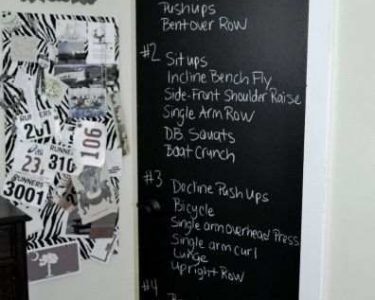 Pushups
Bentover Row
#2 Situps
Incline Bench Fly
Side-Front Shoulder Raise
Single Arm Row
DB Squats
Boat Crunch
#3 Decline Push Ups
Bicycle
Single arm overhead Press
Single arm curl
Lunge
Upright Row
#4
RUNNERS
23
310
106
RUNNERS
3001